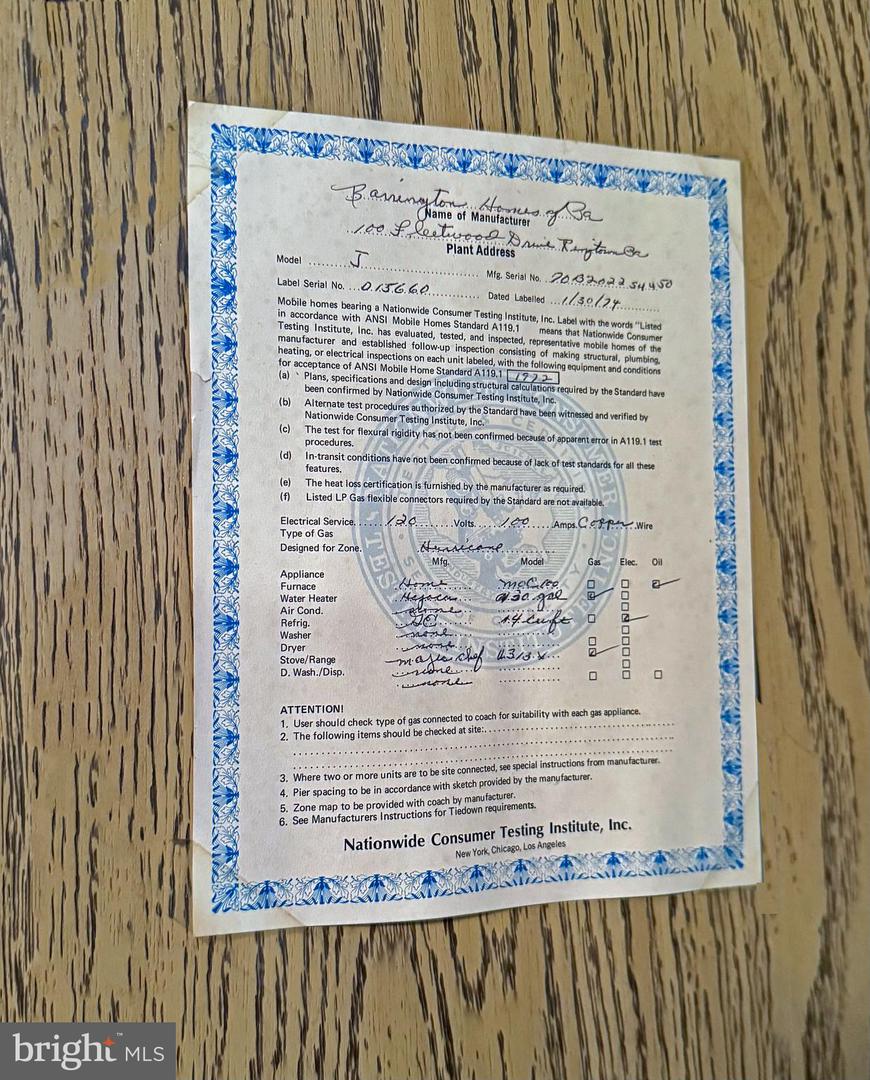 Barrington Homes of Pa
Name of Manufacturer
100 Fleetwood Drive Ringtown Pa
Plant Address
Model J Mfg. Serial No.
Label Serial No. 015660 Dated Labelled 1/30/74
Mobile homes bearing a Nationwide Consumer Testing Institute, Inc. Label with the words "Listed
in accordance with ANSI Mobile Homes Standard A119.1 means that Nationwide Consumer
Testing Institute, Inc. has evaluated, tested, and inspected, representative mobile homes of the
manufacturer and established follow-up inspection consisting of making structural, plumbing,
heating, or electrical inspections on each unit labeled, with the following equipment and conditions
for acceptance of ANSI Mobile Home Standard A119.1
(a) Plans, specifications and design including structural calculations required by the Standard have
been confirmed by Nationwide Consumer Testing Institute, Inc.
(b) Alternate test procedures authorized by the Standard have been witnessed and verified by
Nationwide Consumer Testing Institute, Inc.
(c) The test for flexural rigidity has not been confirmed because of apparent error in A119.1 test
procedures.
(d) In-transit conditions have not been confirmed because of lack of test standards for all these
features.
(e) The heat loss certification is furnished by the manufacturer as required.
(f) Listed LP Gas flexible connectors required by the Standard are not available.
Electrical Service 120 Volts 100 Amps. Copper Wire
Type of Gas
Designed for Zone. Hurricane
Mfg. Model Gas Elec. Oil
Appliance
Furnace Home
Water Heater 30 gal
Air Cond. none
Refrig.
Washer none
Dryer none
Stove/Range magic chef
D. Wash./Disp. none
none
ATTENTION!
1. User should check type of gas connected to coach for suitability with each gas appliance.
2. The following items should be checked at site:
3. Where two or more units are to be site connected, see special instructions from manufacturer.
4. Pier spacing to be in accordance with sketch provided by the manufacturer.
5. Zone map to be provided with coach by manufacturer.
6. See Manufacturers Instructions for Tiedown requirements.
Nationwide Consumer Testing Institute, Inc.
New York, Chicago, Los Angeles
bright™ MLS